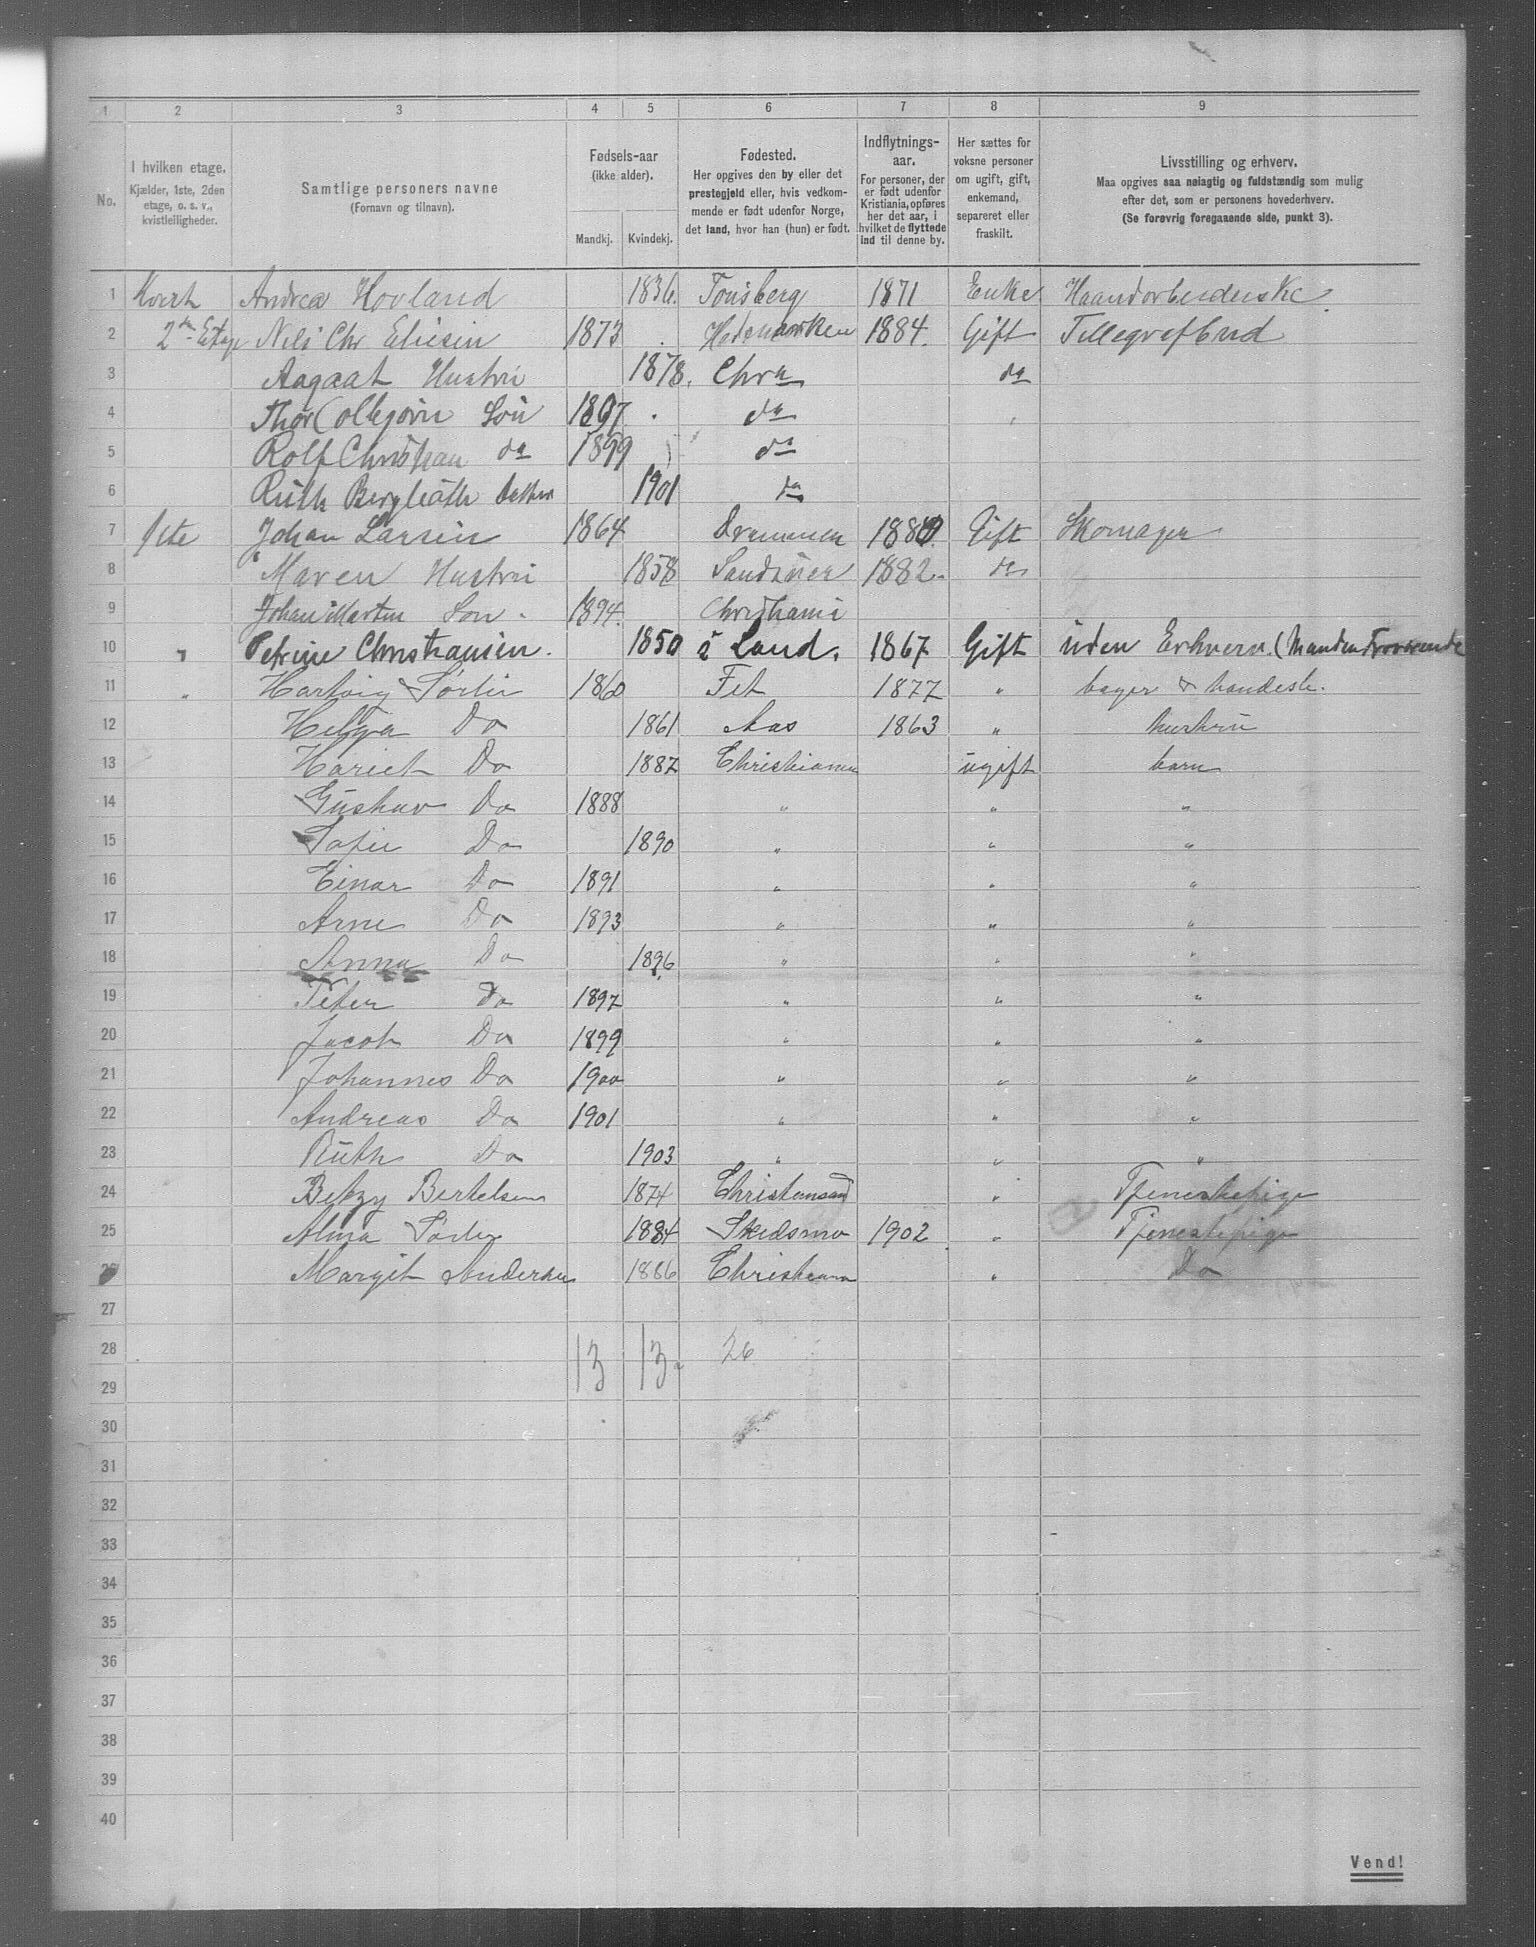 1 2 3 4 5 6 7 8 9
No.
I hvilken etage.
Kjælder, 1ste, 2den
etage, o. s. v.,
kvistleiligheder.
Samtlige personers navne
(Fornavn og tilnavn).
Fødsels-aar
(ikke alder).
Mandkj. Kvindekj.
Fødested.
Her opgives den by eller det
prestegjeld eller, hvis vedkom-
mende er født udenfor Norge,
det land, hvor han (hun) er født.
Indflytnings-
aar.
For personer, der
er født udenfor
Kristiania, opføres
her det aar, i
hvilket de flyttede
ind til denne by.
Her sættes for
voksne personer
om ugift, gift,
enkemand,
separeret eller
fraskilt.
Livsstilling og erhverv.
Maa opgives saa nøiagtig og fuldstændig som mulig
efter det, som er personens hovederhverv.
(Se forøvrig foregaaende side, punkt 3).
1 Andrea Hovland 1836. Tønsberg 1871 Enke
2 2den Etage Nils Chr Eliesen 1873 Hedemarken 1884. Gift Tellegrafbud
3 Aagaat Hustru 1878. Chra da
4 Thor Søn 1897 da
5 Rolf Christian da 1899 da
6 Ruth Bergliøth Datter 1901 da
7 1ste Johan Larsen 1864 Drammen Gift Skomager
8 Maren Hustru 1858 Sandsvær 1882. da
9 Johan Martin Søn. 1894. Christiania
10 " Petrine Christiansen. 1850 s Land. 1867 Gift uden Erhverv. (Manden Fraværende
11 " Hartvig Sørlie 1860 Fet 1877 " bager & handesb.
12 Helga Do 1861 Aas 1863 " hustru
13 Hariet Do 1887 Christiania ugift barn
14 Gustav Do 1888 " " "
15 Sofie Do 1890 " " "
16 Einar Do 1891 " " "
17 Arne Do 1893 " " "
18 Anna Do 1896 " " "
19 Peter Do 1897 " " "
20 Jacob Do 1899 " " "
21 Johannes Do 1900 " " "
22 Andreas Do 1901 " " "
23 Ruth Do 1903 " " "
24 Betzy Bertelsen 1874 Christiansand " Tjenestepige
25 Alma Sørlie 1884 Skedsmo 1902 " Tjenestepige
26 Margit Andersen 1886 Christiania " Do
27
28 13 13 26
29
30
31
32
33
34
35
36
37
38
39
40
Vend!